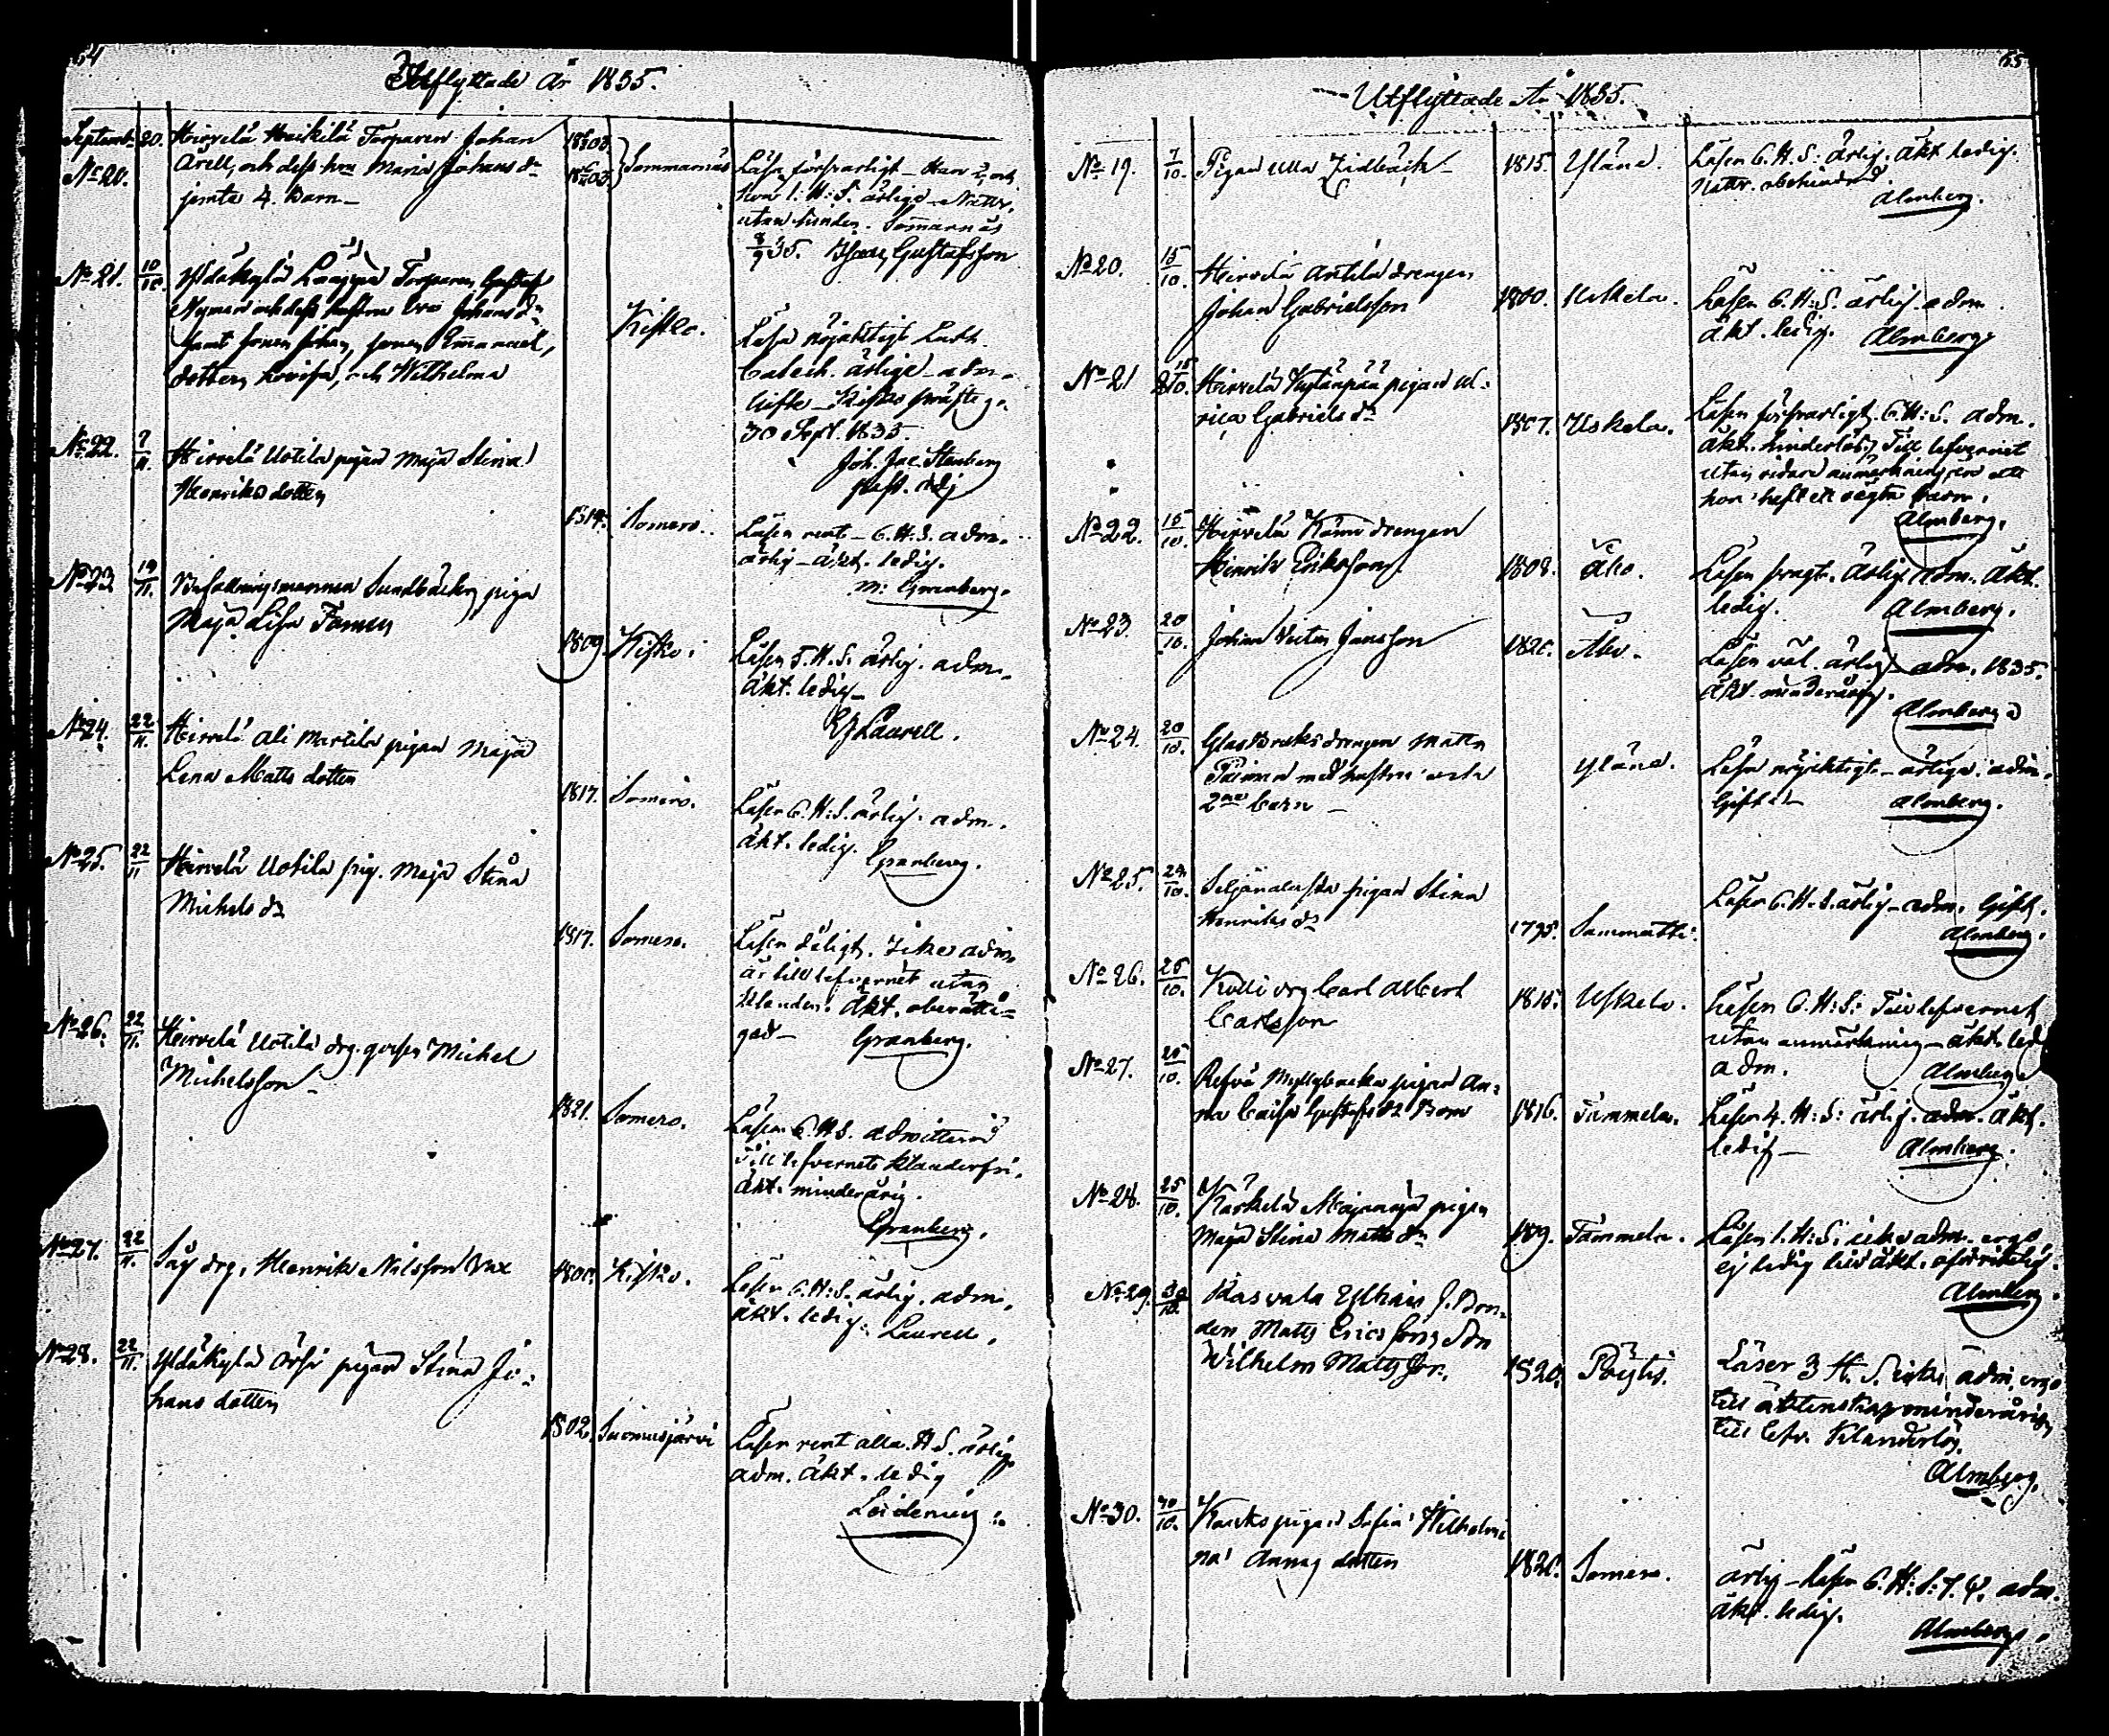 64
Utflyttade År 1835.
Septemb. 20. Hirvelä Heikilä Torparen Johan
No 20. Arell, och dess hu Maria Johans dr
jemte 4. barn
1803
1803
Sommarnäs
Läsa försvarligt - Han 2, och
hon 1. H: S. ärlige - Nattv.
utan hinder. Sommarnäs
8/9 35. Isaac Gustafsson
No 21. 10/10. Yldäkylä Torparen Gustaf
Nyman och dess hustru Johans dr
samt sonen Johan, sonen Emanuel,
dottren Lovisa, och Wilhelma
Kisko.
Läsa nöjaktigt Luth.
Catech. ärlige - adm.
Gifte - Kisko prästg.
30 Sept. 1835.
Joh. Jac. Stenberg
past. adj
No 22. 7/11. Hirvelä Uotila pigan Maja Stina
Henriksdotter
1814. Somero.
Läser rent - 6. H. S. adm.
ärlig - äkt. ledig.
Granberg.
No 23 19/11. Befallningsmannen Sundbäcks piga
Maja Lisa
1809. Kisko.
Läser 5. H. S. ärlig. adm.
äkt. ledig -
Laurell.
No 24. 22/11. Hirvelä Ali Martila pigan Maja
Lena Matts dotter
1817. Somero.
Läser 6. H: S. ärlig. adm.
äkt. ledig.
Granberg.
No 25. 22/11 Hirvelä Uotila pig. Maja Stina
Michels dr
1817. Somero.
Läser dåligt. Icke adm.
är till lefvernet utan
klander. Äkt. oberätti=
gad -
Granberg.
No 26. 22/11. Hirvelä Uotila drg. gossen Michel
Michelsson
1821. Somero.
Läser 6 H S. admitterad
Till lefvernet klanderfri.
äkt. minderårig.
Granberg.
No 27. 22/11. Såg drg. Henrik Nilsson Wax
1800. Kisko.
Läser 6. H: S. ärlig. adm.
äkt. ledig. Laurell.
No 28. 22/11. Yldäkylä Örsi pigan Stina Jo=
hans dotter
1802. Suomusjärvi
Läser rent alla H S. ärlig
adm. äkt. ledig
65
Utflyttade År 1835.
No 19. 7/10. Pigan Ulla Zidbäck
1815. Yläne.
Läser 6. H. S: ärlig. äkt ledig.
Nattv. obehindrad.
Almberg.
No 20. 15/10. Hirvelä Antila drengen
Johan Gabrielsson
1800. Uskela.
Läser 6. H: S. ärlig. adm
äkt. ledig. Almberg.
No 21 15/10. Hirvelä Kylänpää pigan Ul=
rica Gabriels dr
1807. Uskela.
Läser försvarligt. 6 H: S. adm.
äkt. hinderlös, Till lefvernet
utan vidare anmärkning än att
hon haft ett oägta barn.
Almberg.
No 22. 15/10. Hirvelä drengen
Henrik Eriksson
1808. Åbo.
Läser svagt. Ärlig adm. Äkt.
ledig. Almberg.
No 23. 20/10. Johan Jansson
1820. Åbo.
Läser väl. ärlig - adm. 1835.
äkt. minderårig.
Almberg
No 24. 20/10. Glasbruksdrengen Matts
med hustru och
2ne barn -
Yläne.
Läsa nöjaktigt - ärlige. adm.
Gifte -
Almberg.
No 25. 24/10. pigan Stina
Henriks dr
1795. Sammatti.
Läser 6. H. S. ärlig - adm. Gift.
Almberg.
No 26. 25/10. drg Carl Albert
Carlsson
1815. Uskela.
Läser 6. H: S: Till lefvernet
utan anmärkning - äkt. led
adm. Almberg
No 27. 25/10. pigan An=
na Caisa Gustafs dr Bom
1816. Tammela.
Läser 4. H: S: ärlig. adm. äkt.
ledig - Almberg.
No 28. 25/10. Kärkelä pigan
Maja Stina Matts dr
1819. Tammela.
Läser 1. H: S: icke adm. ergo
ej ledig till äkt. oförvitelig.
Almberg.
No 29. 30/10. Rasvala Ylhäis J. Bon=
den Matts Ericssons Son
Wilhelm Mattsson.
1820. Pöytis.
Läser 3 H. S. icke adm. ergo
till äktenskap minderårig,
till lefv. klanderlös.
Almberg.
No 30. 30/10. pigan Sofia Wilhelmi
na Annas dotter
1820. Somero.
ärlig - läser 6. H: S: adm.
äkt. ledig.
Almberg.